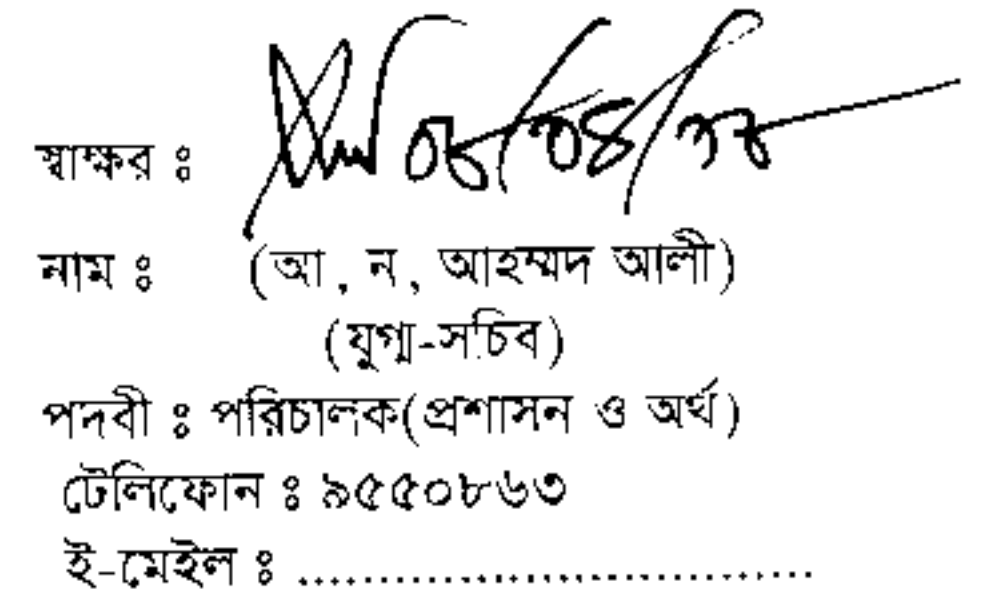 স্বাক্ষর ঃ
নাম ঃ (আ, ন, আহম্মদ আলী)
(যুগ্ম-সচিব)
পদবী ঃ পরিচালক(প্রশাসন ও অর্থ)
টেলিফোন ঃ ৯৫৫০৮৬৩
ই-মেইল ঃ ................................